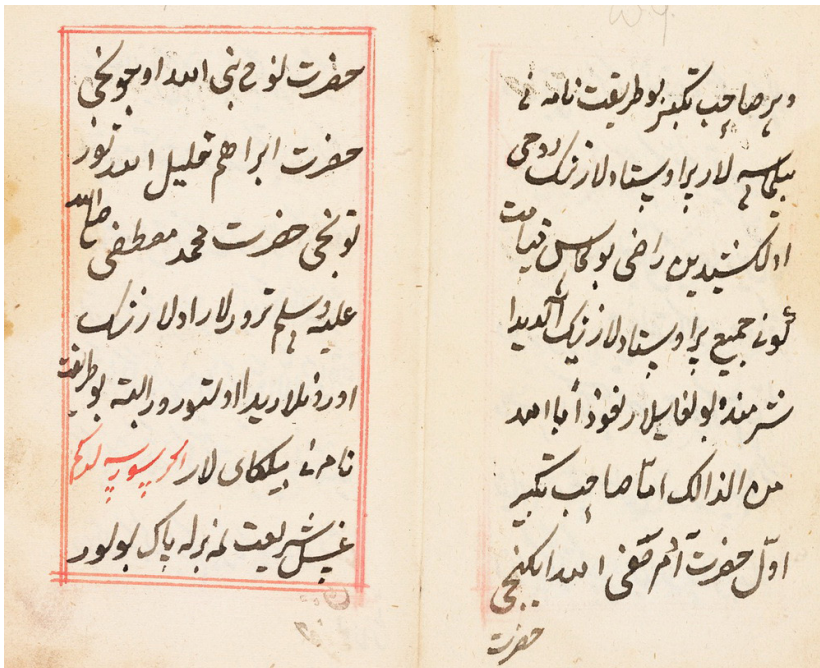 و هر صاحب تکبیر بو طریقت نامه نی
بیلماسه لار پر اوستادلارنینک روحی
اولکشیدین راضی بولماس قیامت
کونی جمیع پر اوستادلارنینک آلدیدا
شرمنده بولغایلار نعوذ أبا الله
من الذالک امّا صاحب تکبیر
اوّل حضرت آدم صفی الله ایکنجی
حضرت
حضرت نوح نبی الله اوچونجی
حضرت ابراهم خلیل الله تور
تونجی حضرت محمد مصطفی صلی الله
علیه وسلم ترورلار اولارنینک
اورونلاریدا اولتورور البته بو طریقت
نامه نی بیلکای لار اکر سورسه لار کم
غسل شریعت نه برله پاک بولور